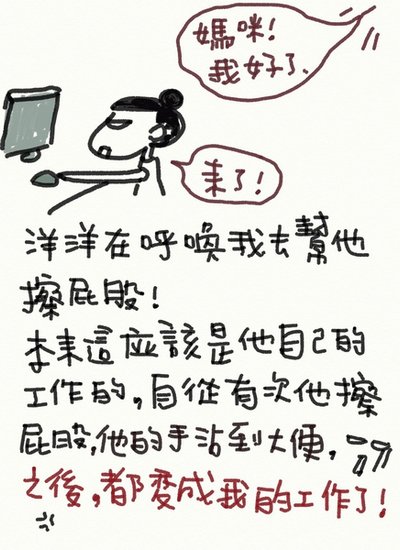 媽咪!
我好了.
來了!
洋洋在呼喚我去幫他
擦屁股!
本來這應該是他自己的
工作的,自從有次他擦
屁股,他的手沾到大便,
之後,都變成我的工作了!